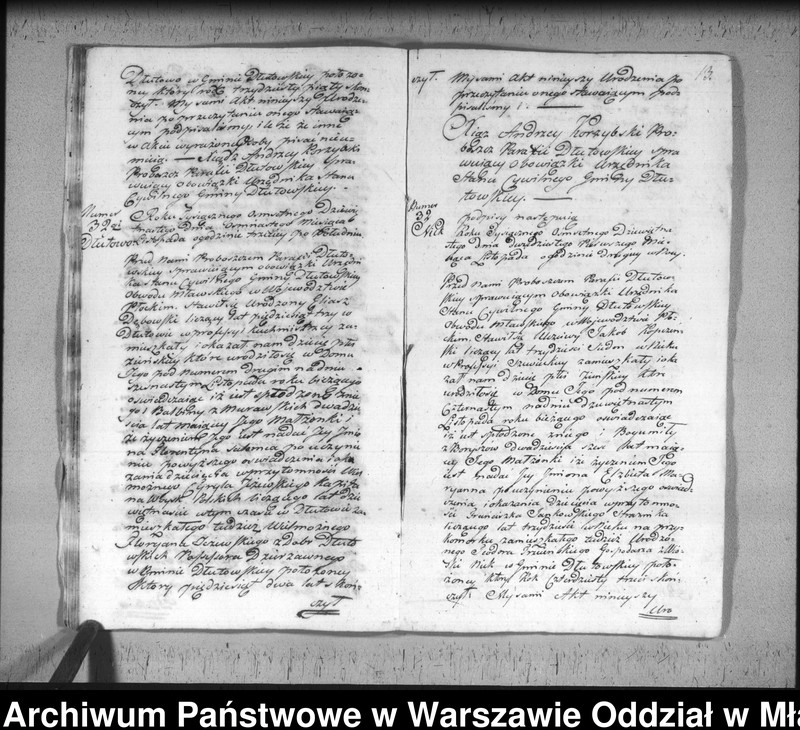 Dłutowo w Gminie Dłutowskiey położo-
ney który rok trzydziesty piąty skoń
czył. My sami Akt ninieyszy Urodze-
nia po przeczytaniu onego Stawaią-
cym podpisaliśmy i ile że inne
w Akcie wyrażone Osoby pisać nieu-
mieią. — Xiądz Andrzey Korzybski
Proboszcz Parafii Dłutowskiey spra-
wuiący obowiązki Urzędnika Stanu
Cywilnego Gminy Dłutowskiey. —
Numer
32gi
Dłutowo
Roku Tysiącznego Ośmsetnego Dziewię-
tnastego Dnia Ośmnastego Miesiąca
Listopada o godzinie trzeciey po południu
Przed Nami Proboszczem Parafii Dłuto-
wskiey sprawuiącym obowiązki Urzędni-
ka Stanu Cywilnego Gminy Dłutowskiey
Obwodu Mławskiego w Woiewództwie
Płockim. Stawił się Urodzony Eliasz
Dębowski liczący lat pięćdziesiąt trzy w
Dłutowie w professyi Kuchmistrz za-
mieszkały i okazał nam dziecię płci
żeńskiey które urodziło się w Domu
Jego pod Numerem drugim na dniu
szesnastym Listopada roku bieżącego
oświadczaiąc iż iest spłodzone z nie-
go i Balbiny z Murawskich dwadzie
ścia lat maiącey Jego Małżonki i
że życzeniem Jego iest nadać Jey Imię
na Florentyna Salomea po uczynie
niu powyższego oświadczenia i oka-
zania dziecięcia w przytomności Wiel
możnego Cyryla Izewskiego Kapita
na Woysk Polskich liczącego lat dzie
więtnaście w tym czasie w Dłutowie za-
mieszkałego tudzież Wielmożnego
Floryana Cissewskiego z Dobr Dłuto
wskich Possessora Dzierżawnego
w Gminie Dłutowskiey położoney
który pięćdziesiąt dwa lat skoń-
czył
13.
czył. My sami Akt ninieyszy Urodzenia po
przeczytaniu onego Stawaiącym pod
pisaliśmy. —
Xiądz Andrzey Korzybski Pro-
boszcz Parafii Dłutowskiey spra
wuiący Obowiązki Urzędnika
Stanu Cywilnego Gminy Dłu-
towskiey. —
podpisy następuią
Numer
32
Nick
Roku Tysiącznego Ośmsetnego Dziewiętna-
stego dnia dwudziestego Pierwszego Mie-
siąca Listopada o godzinie drugiey
Przed Nami Proboszczem Parafii Dłutow-
skiey sprawuiącym Obowiązki Urzędnika
Stanu Cywilnego Gminy Dłutowskiey
Obwodu Mławskiego w Woiewództwie Pło-
ckim. Stawił się Uczciwy Jakób
ski liczący lat trzydzieści siedm w Nicku
w Professyi zamieszkały i oka
zał nam dziecię płci żeńskiey które
urodziło się w Domu Jego pod numerem
Czternastym na dniu Dziewiętnastym
Listopada roku bieżącego oświadczaiąc
iż iest spłodzone z niego i Bogumiły
z dwadzieścia sześć lat maią-
cey Jego Małżonki i że życzeniem Jego
iest nadać Jey Imiona Elżbieta Ma-
ryanna po uczynieniu powyższego oświad-
czenia i okazania dziecięcia w przytomno-
ści Franciszka Strażnika
liczącego lat trzydzieści w Nicku na przy-
komorku zamieszkałego tudzież Urodzo-
nego Teodora Gospodarza z Wło-
ści Nick w Gminie Dłutowskiey poło-
żoney który Rok Czterdziesty trzeci skoń-
czył. My sami Akt ninieyszy
Uro
Archiwum Państwowe w Warszawie Oddział w Mła